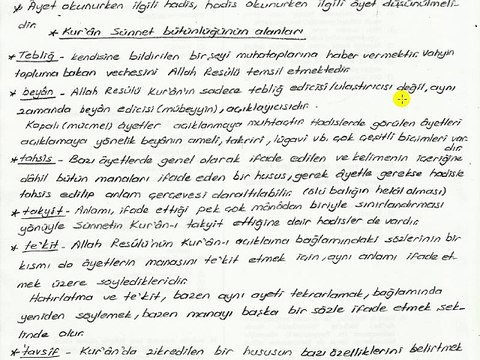 * Âyet okunurken ilgili hadis, hadis okunurken ilgili âyet düşünülmeli-
dir.
* Kur'ân Sünnet bütünlüğünün alanları
* Tebliğ - kendisine bildirilen bir şeyi muhataplarına haber vermektir. Vahyin
topluma bakan vechesini Allah Resûlü temsil etmektedir.
* beyân - Allah Resûlü Kur'ân'ın sadece tebliğ edicisi/ulaştırıcısı değil, aynı
zamanda beyân edicisi (mübeyyin), açıklayıcısıdır.
Kapalı (mücmel) âyetler açıklanmaya muhtaçtır. Hadislerde görülen âyetleri
açıklamaya yönelik beyânın ameli, takriri, lügavi vb. çok çeşitli biçimleri var
dır.
* tahsis - Bazı âyetlerde genel olarak ifade edilen ve kelimenin içeriğine
dâhil bütün manaları ifade eden bir husus, gerek âyetle gerekse hadisle
tahsis edilip anlam çerçevesi daraltılabilir. (ölü balığın helâl olması)
* takyit - Anlamı, ifade ettiği pek çok mânâdan biriyle sınırlandırması
yönüyle sünnetin Kur'ân-ı takyit ettiğine dair hadisler de vardır.
* te'kit - Allah Resûlü'nün Kur'ân-ı açıklama bağlamındaki sözlerinin bir
kısmı da âyetlerin manasını te'kit etmek için, aynı anlamı ifade et-
mek üzere söyledikleridir.
Hatırlatma ve te'kit, bazen aynı ayeti tekrarlamak, bağlamında
yeniden söylemek, bazen manayı başka bir sözle ifade etmek, şek-
linde olur.
* tavsif - Kur'ân'da zikredilen bir hususun bazı özelliklerini belirtmek